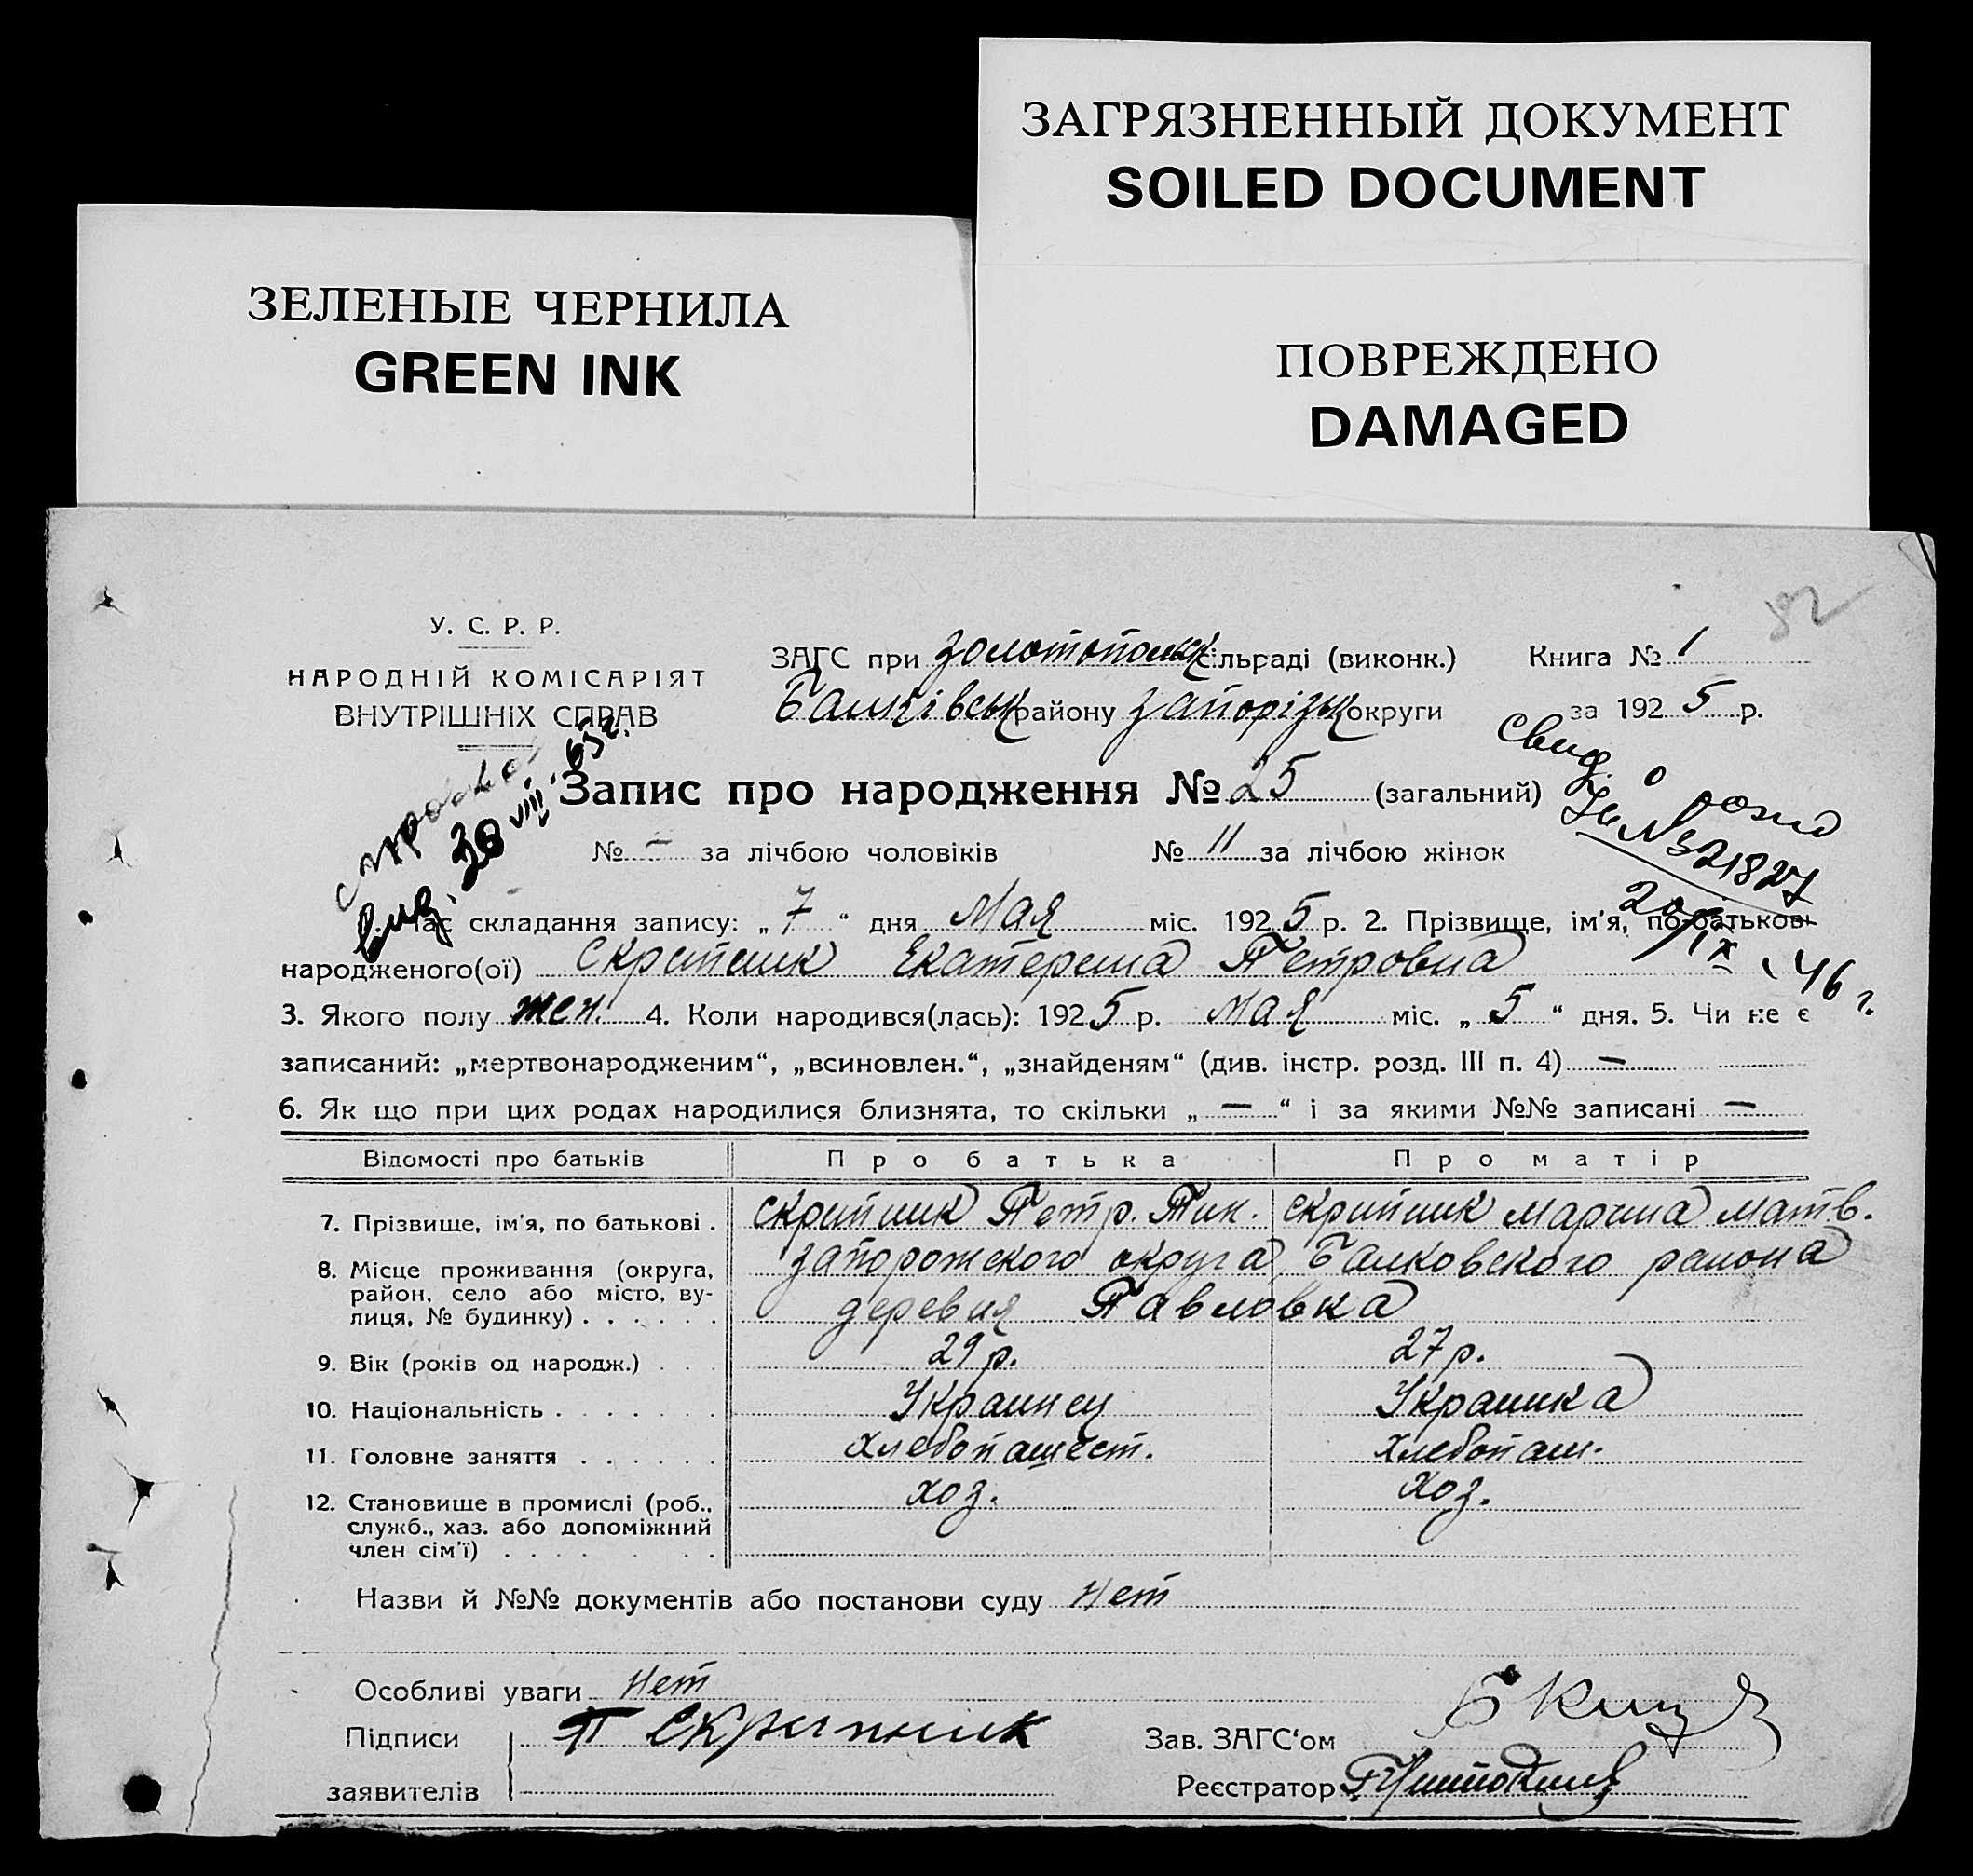 ЗАГРЯЗНЕННЫЙ ДОКУМЕНТ
SOILED DOCUMENT
ЗЕЛЕНЫЕ ЧЕРНИЛА
GREEN INK
ПОВРЕЖДЕНО
DAMAGED
92
У. С. Р. Р.
НАРОДНІЙ КОМІСАРІЯТ
ВНУТРІШНІХ СПРАВ
ЗАГС при Золотопольск сільраді (виконк.) Книга № 1
Балківськ району Запорізьк округи за 1925 р.
Запис про народження № 25 (загальний)
№ - за лічбою чоловіків № 11 за лічбою жінок
вид. 30 VIII. 65 г.
Свид. о рожд
№ 321827
20/IX 46 г.
Час складання запису: „7“ дня Мая міс. 1925 р. 2. Прізвище, ім'я, по-батькові
народженого(ої) Скрипник Екатерина Петровна
3. Якого полу жен. 4. Коли народився(лась): 1925 р. Мая міс. „5“ дня. 5. Чи не є
записаний: „мертвонародженим“, „всиновлен.“, „знайденям“ (див. інстр. розд. III п. 4) —
6. Як що при цих родах народилися близнята, то скільки „—“ і за якими №№ записані —
Відомості про батьків Про батька Про матір
7. Прізвище, ім'я, по батькові . Скрипник Петр. Тик. Скрипник Марина Матв.
8. Місце проживання (округа, район, село або місто, ву-лиця, № будинку) . . . . . . Запорожского округа, Балковского района
деревня Павловка
9. Вік (років од народж.) . . 29 р. 27 р.
10. Національність . . . . . . . Украинец Украинка
11. Головне заняття . . . . . . Хлебопашест. Хлебопаш.
12. Становище в промислі (роб., служб., хаз. або допоміжний член сім'ї) . . . . . . хоз. хоз.
Назви й №№ документів або постанови суду Нет
Особливі уваги Нет
Підписи П Скрипник Зав. ЗАГС'ом
заявителів Реєстратор